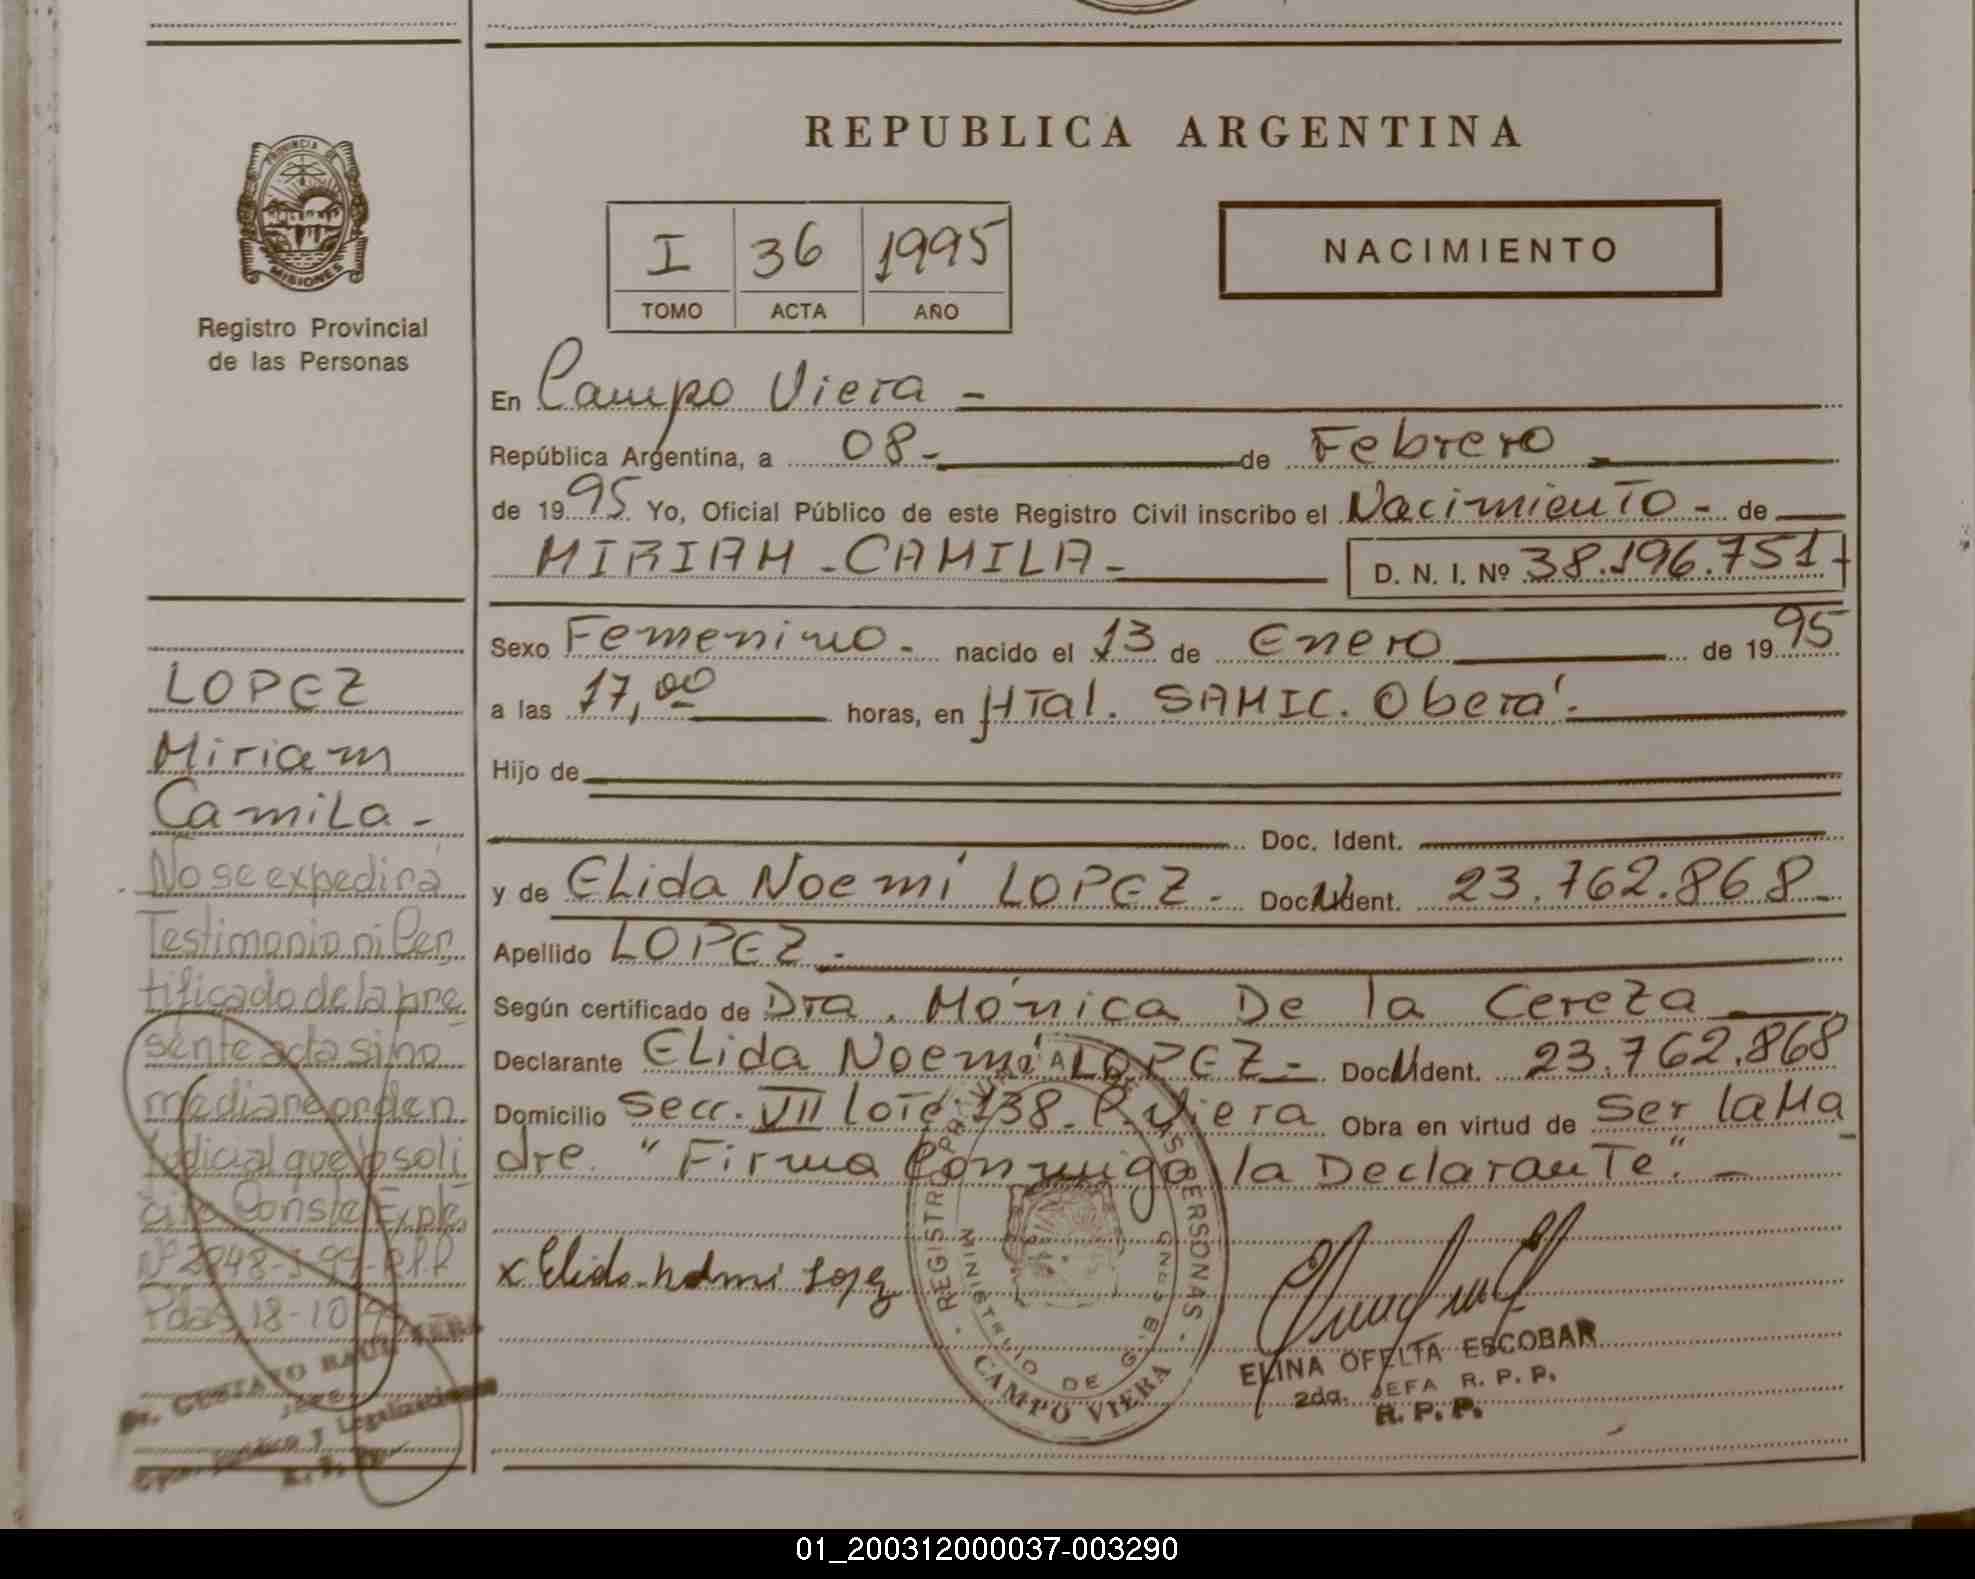 REPUBLICA ARGENTINA
PROVINCIA DE
MISIONES
Registro Provincial
de las Personas
I 36 1995
TOMO ACTA AÑO
NACIMIENTO
En Campo Viera -
República Argentina, a 08- de Febrero
de 1995 Yo, Oficial Público de este Registro Civil inscribo el Nacimiento - de
MIRIAM - CAMILA - D. N. I. Nº 38.196.751-
Sexo Femenino - nacido el 13 de Enero de 1995
a las 17,00 horas, en HTal. SAMIC. Oberá.
Hijo de
Doc. Ident.
y de ELida Noemí LOPEZ - Doc.Ident. 23.762.868-
Apellido LOPEZ -
Según certificado de Dra. Mónica De la Cereza
Declarante ELida Noemí LOPEZ - Doc.Ident. 23.762.868
Domicilio Secc. VII lote 138 - C. Viera Obra en virtud de ser la Ma
dre. "Firma Conmigo la Declarante". -
x Elida nohmi Lopez
REGISTRO PERSONAS
MINISTERIO DE GOB
CAMPO VIERA
ELINA OFELIA ESCOBAR
2da. JEFA R. P. P.
R. P. P.
LOPEZ
Miriam
CamiLa -
No se expedirá
Testimonio ni Cer
tificado de la pre
sente acta si no
mediare orden
Judicial que lo soli
cite Conste Expte.
Nº 2948-
Pdas, 18-10
Dr. GUSTAVO RAUL
JEFE
y Legalizaciones
01_200312000037-003290